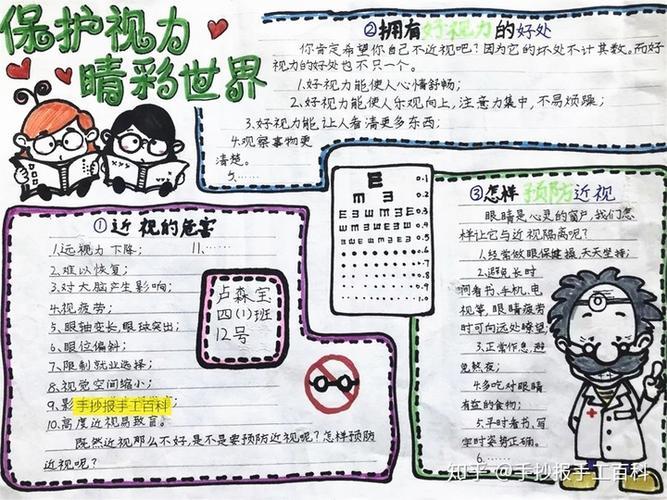 保护视力
睛彩世界
②拥有好视力的好处
你肯定希望你自己不近视吧?因为它的坏处不计其数。而好
视力的好处也不只一个。
1.好视力能使人心情舒畅;
2.好视力能使人乐观向上,注意力集中,不易烦躁;
3.好视力能让人看清更多东西;
4.观察事物更
清楚。
5.……
①近视的危害
1.远视力下降; 11.……
2.难以恢复;
3.对大脑产生影响;
4.视疲劳;
5.眼轴变长,眼球突出;
6.眼位偏斜;
7.限制就业选择;
8.视觉空间缩小;
9.影
手抄报手工百科
10.高度近视易致盲。
既然近视那么不好,是不是要预防近视呢?怎样预防
近视呢?
卢森宝
四(1)班
12号
E 0.1
0.2
0.3
0.4
0.5
0.6
0.7
0.8
0.9
1.0
③怎样预防近视
眼睛是心灵的窗户,我们怎
样让它与近视隔离呢?
1.经常做眼保健操,天天坚持;
2.避免长时
间看书、手机、电
视等,眼睛疲劳
时可向远处瞭望;
3.正常作息,避
免熬夜;
4.多吃对眼睛
有益的食物;
5.平时看书、写
字时姿势正确。
6.……
知乎 @手抄报手工百科